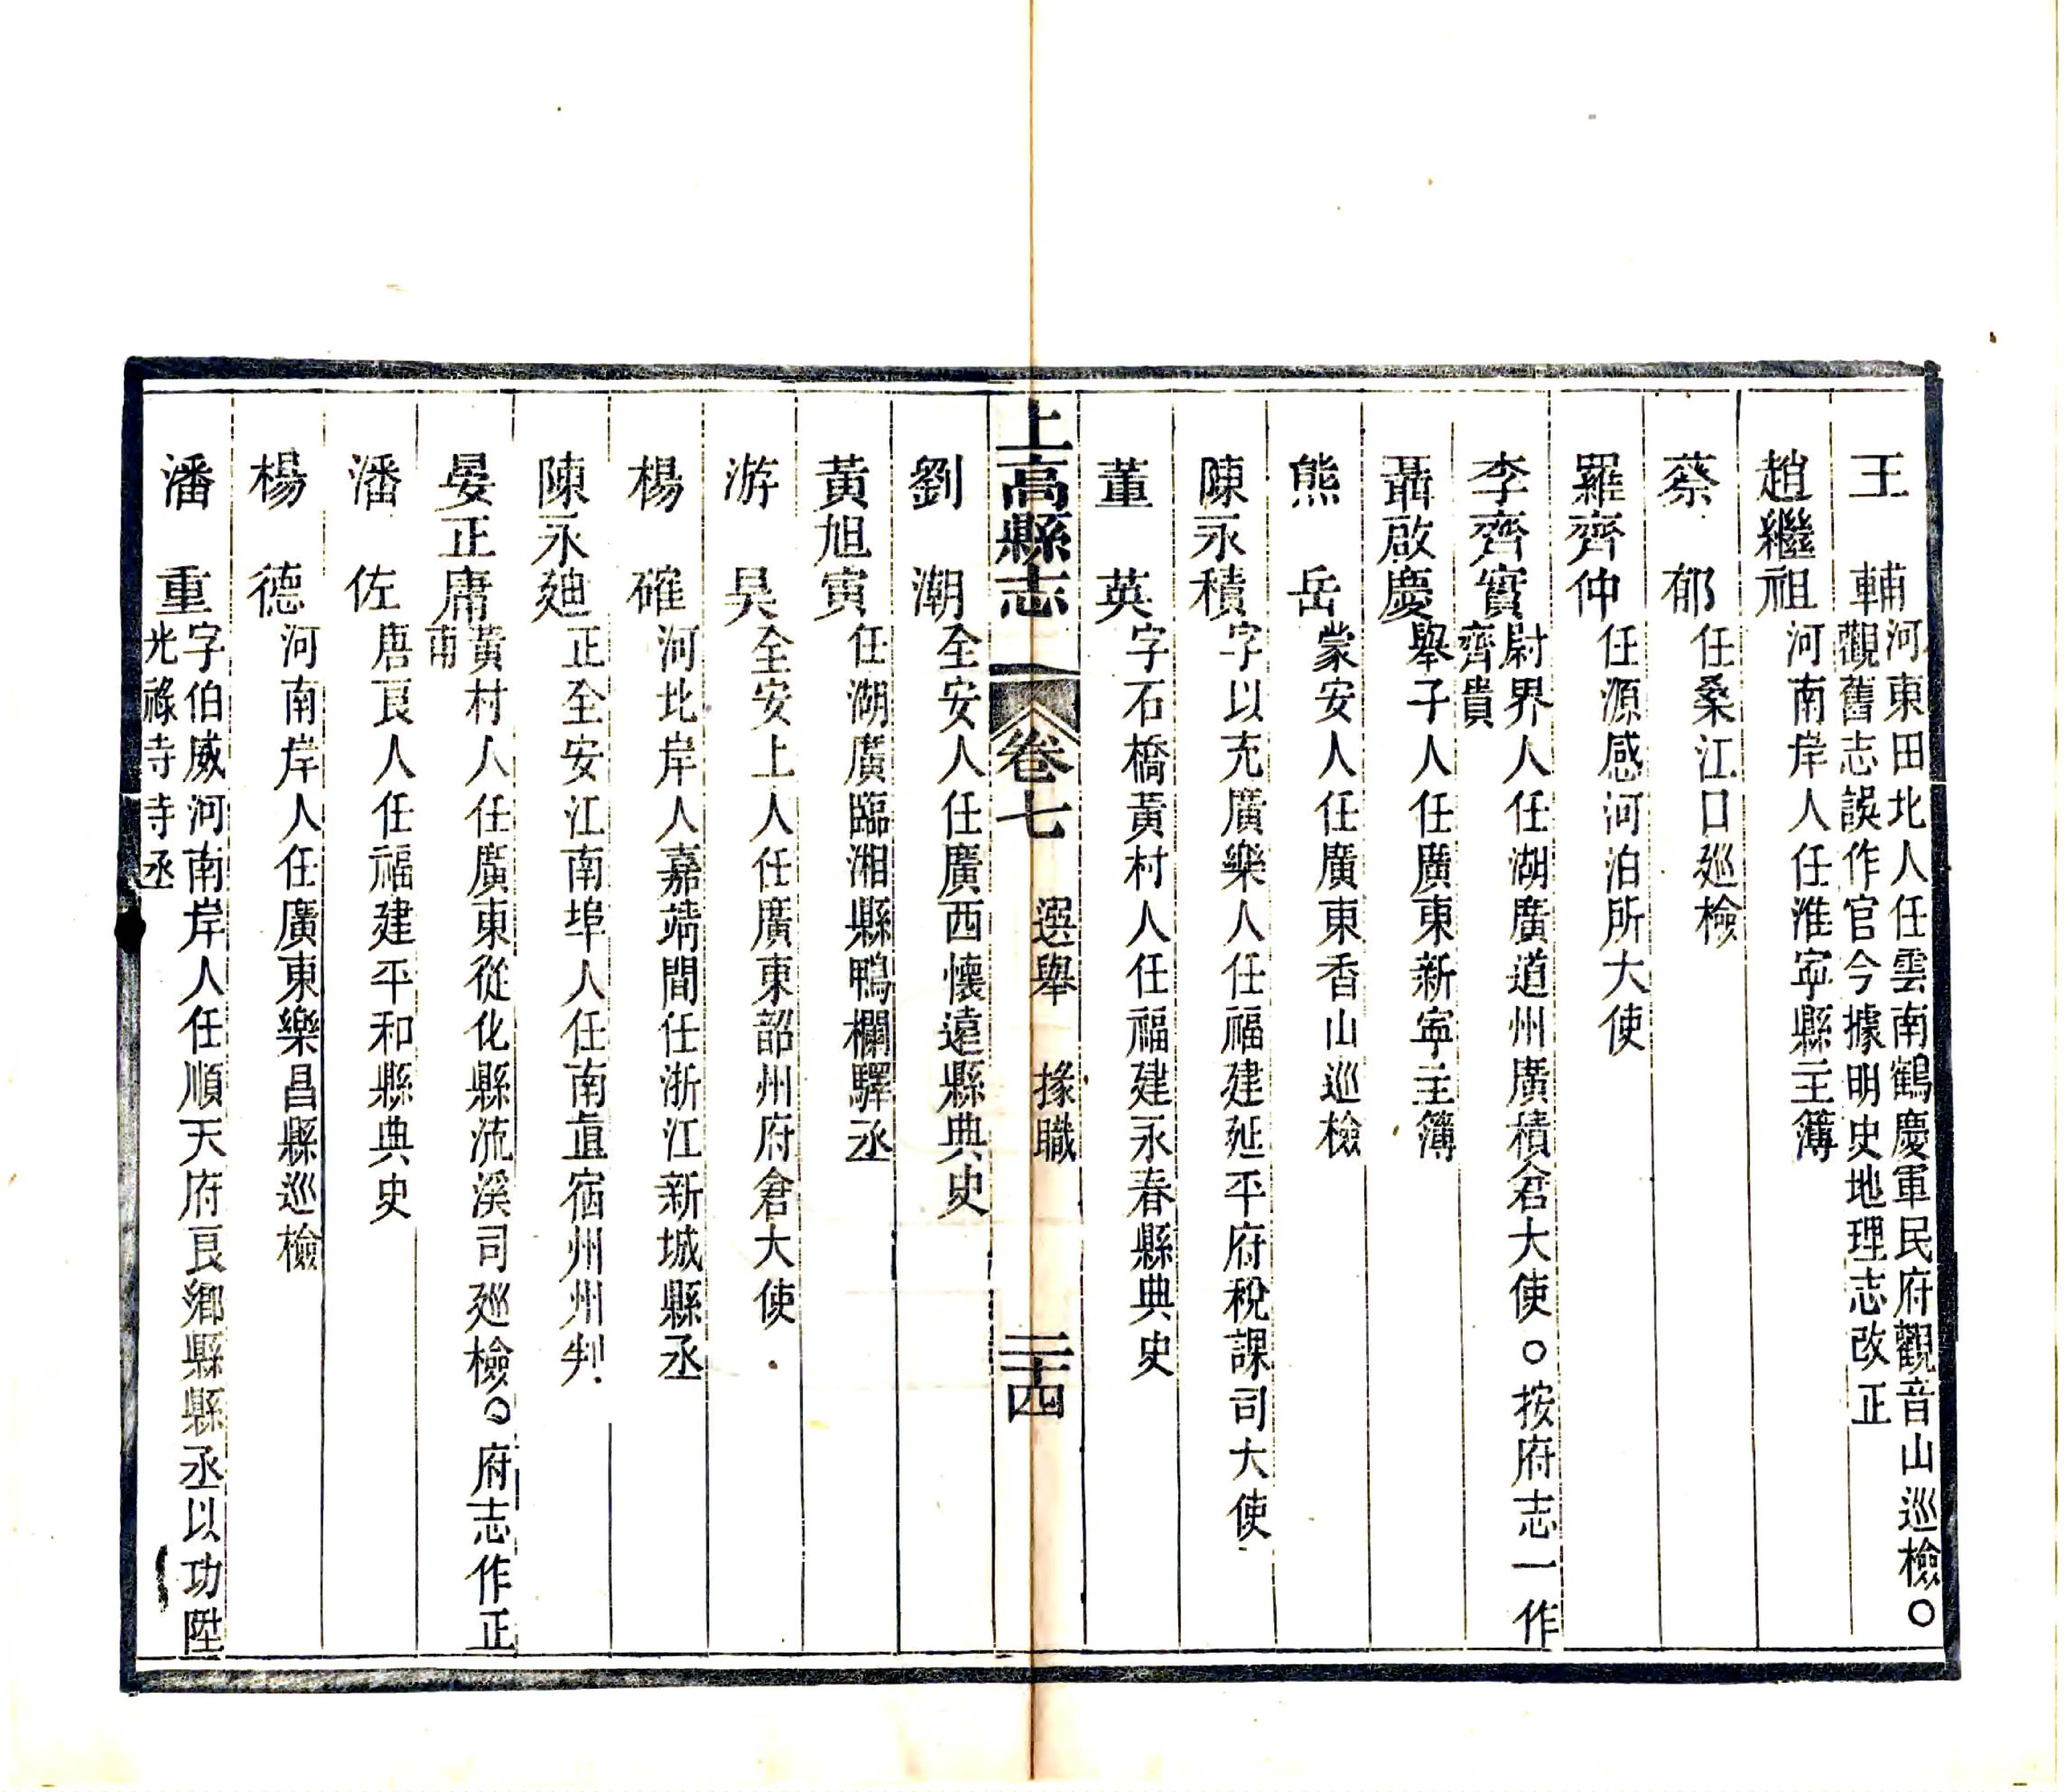 王　輔河東田北人任雲南鶴慶軍民府觀音山巡檢○
觀舊志誤作官今據明史地理志改正
趙繼祖河南岸人任淮寧縣主簿
蔡　郁任桑江口廵檢
羅齊仲任源感河泊所大使
李齊實尉界人任湖廣道州廣積倉大使○按府志一作
齊貴
聶啟慶舉子人任廣東新寧主簿
熊　岳蒙安人任廣東香山巡檢
陳永積字以充廣樂人任福建延平府稅課司大使
董　英字石橋黃村人任福建永春縣典史
上高縣志　卷七　選舉　掾職　二十四
劉　潮全安人任廣西懷遠縣典史
黃旭寅任湖廣臨湘縣鴨欄驛丞
游　昊全安上人任廣東韶州府倉大使
楊　確河北岸人嘉靖間任浙江新城縣丞
陳永廸正全安江南埠人任南直宿州州判
晏正庸黃村人任廣東從化縣流溪司廵檢○府志作正
甫
潘　佐唐良人任福建平和縣典史
楊　德河南岸人任廣東樂昌縣巡檢
潘　重字伯威河南岸人任順天府良鄉縣縣丞以功陞
光祿寺寺丞